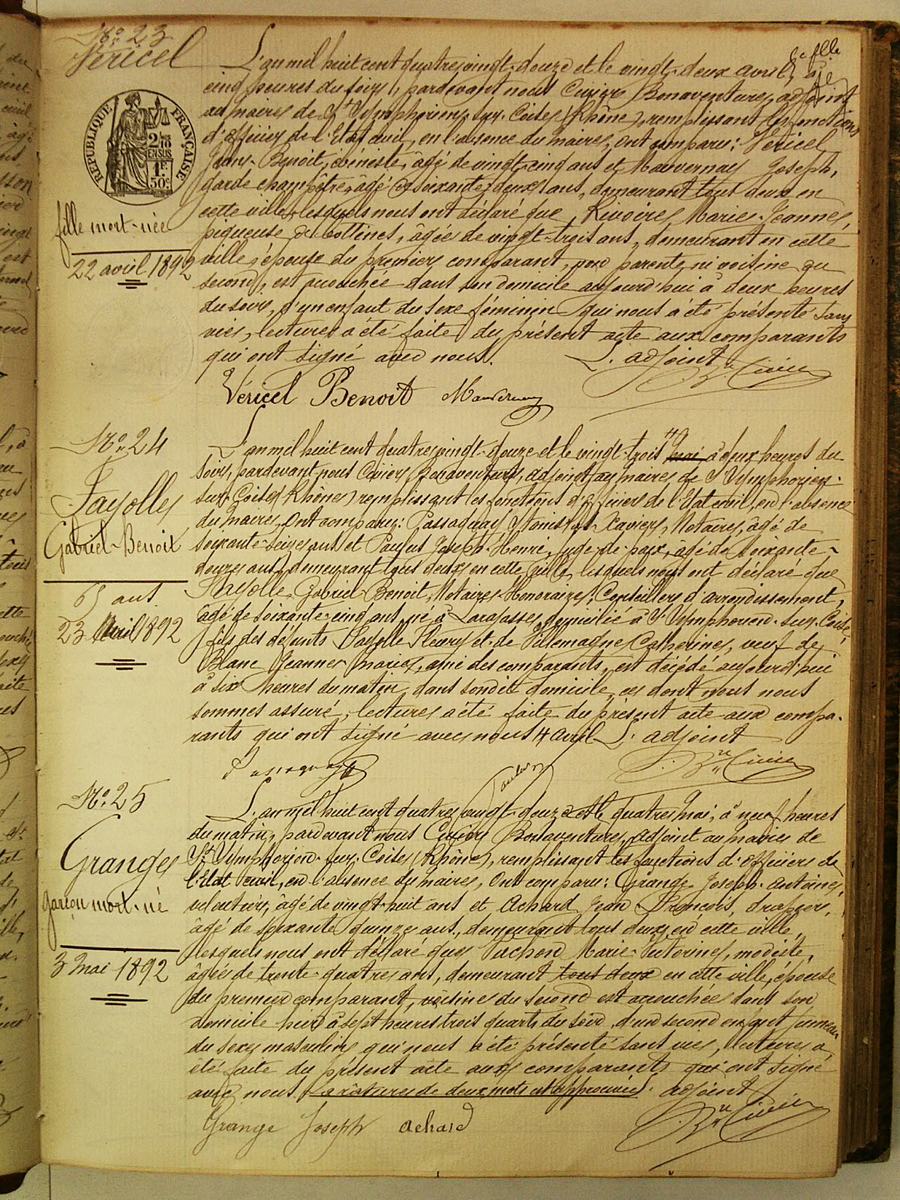 No. 23
Véricel
RÉPUBLIQUE FRANÇAISE
fille mort-née
22 avril 1892
L'an mil huit cent quatre vingt douze et le vingt-deux avril à
cinq heures du soir, pardevant nous Bonaventure, adjoint
au maire de St Symphorien sur Coise (Rhône), remplissant les fonctions
d'officier de l'Etat civil, en l'absence du maire, ont comparu: Véricel
Jean-Benoit, âgé de vingt cinq ans et Mauvernay Joseph,
garde champêtre, âgé de soixante-deux ans, demeurant tout deux en
cette ville, lesquels nous ont déclaré que Rivoire Marie-Jeanne,
piqueuse de bottines, âgée de vingt-trois ans, demeurant en cette
ville, épouse du premier comparant, non parente ni voisine du
second, est accouchée dans son domicile aujourd'hui à deux heures
du soir, d'un enfant du sexe féminin qui nous a été présenté sans
vie, lecture a été faite du présent acte aux comparants
qui ont signé avec nous. L'adjoint
Véricel Benoit Mauvernay
No. 24
Fayolle
Gabriel-Benoit
65 ans
23 Avril 1892
L'an mil huit cent quatre vingt-douze et le vingt trois mai à deux heures du
soir, pardevant nous Bonaventure, adjoint au maire de St Symphorien-
sur-Coise (Rhône) remplissant les fonctions d'officier de l'Etat civil, en l'absence
du maire, Ont comparu: Passaquay Xavier, Notaire, âgé de
soixante-seize ans et Paulus Joseph-Henri, juge de paix, âgé de soixante-
douze ans, demeurant tous deux en cette ville, lesquels nous ont déclaré que
Fayolle Gabriel-Benoit, Notaire Honoraire, Conseiller d'arrondissement,
âgé de soixante-cinq ans, né à Larajasse, domicilié à St Symphorien-sur-Coise,
fils des défunts Fayolle Fleury et de Villemagne Catherine, veuf de
Blanc Jeanne-Marie, ami des comparants, est décédé aujourd'hui
à six heures du matin, dans son dit domicile, ce dont nous nous
sommes assuré, lecture a été faite du présent acte aux compa-
rants qui ont signé avec nous # avril L'adjoint
No. 25
Grange
garçon mort-né
3 mai 1892
L'an mil huit cent quatre vingt-douze et le quatre mai, à neuf heures
du matin, pardevant nous Bonaventure, adjoint au maire de
St Symphorien-sur-Coise (Rhône), remplissant les fonctions d'officier de
l'Etat civil, en l'absence du maire, Ont comparu: Grange Joseph-Antoine,
âgé de vingt-huit ans et Achard Jean-François, drapier,
âgé de soixante-quinze ans, demeurant tous deux en cette ville,
lesquels nous ont déclaré que Marie-Victorine, modiste,
âgée de trente-quatre ans, demeurant tous deux en cette ville, épouse
du premier comparant, voisine du second est accouchée dans son
domicile hier à sept heures trois quarts du soir, d'un second enfant jumeau
du sexe masculin qui nous a été présenté sans vie, lecture a
été faite du présent acte aux comparants qui ont signé
avec nous. La rature de deux mots est approuvée. adjoint
Grange Joseph achard